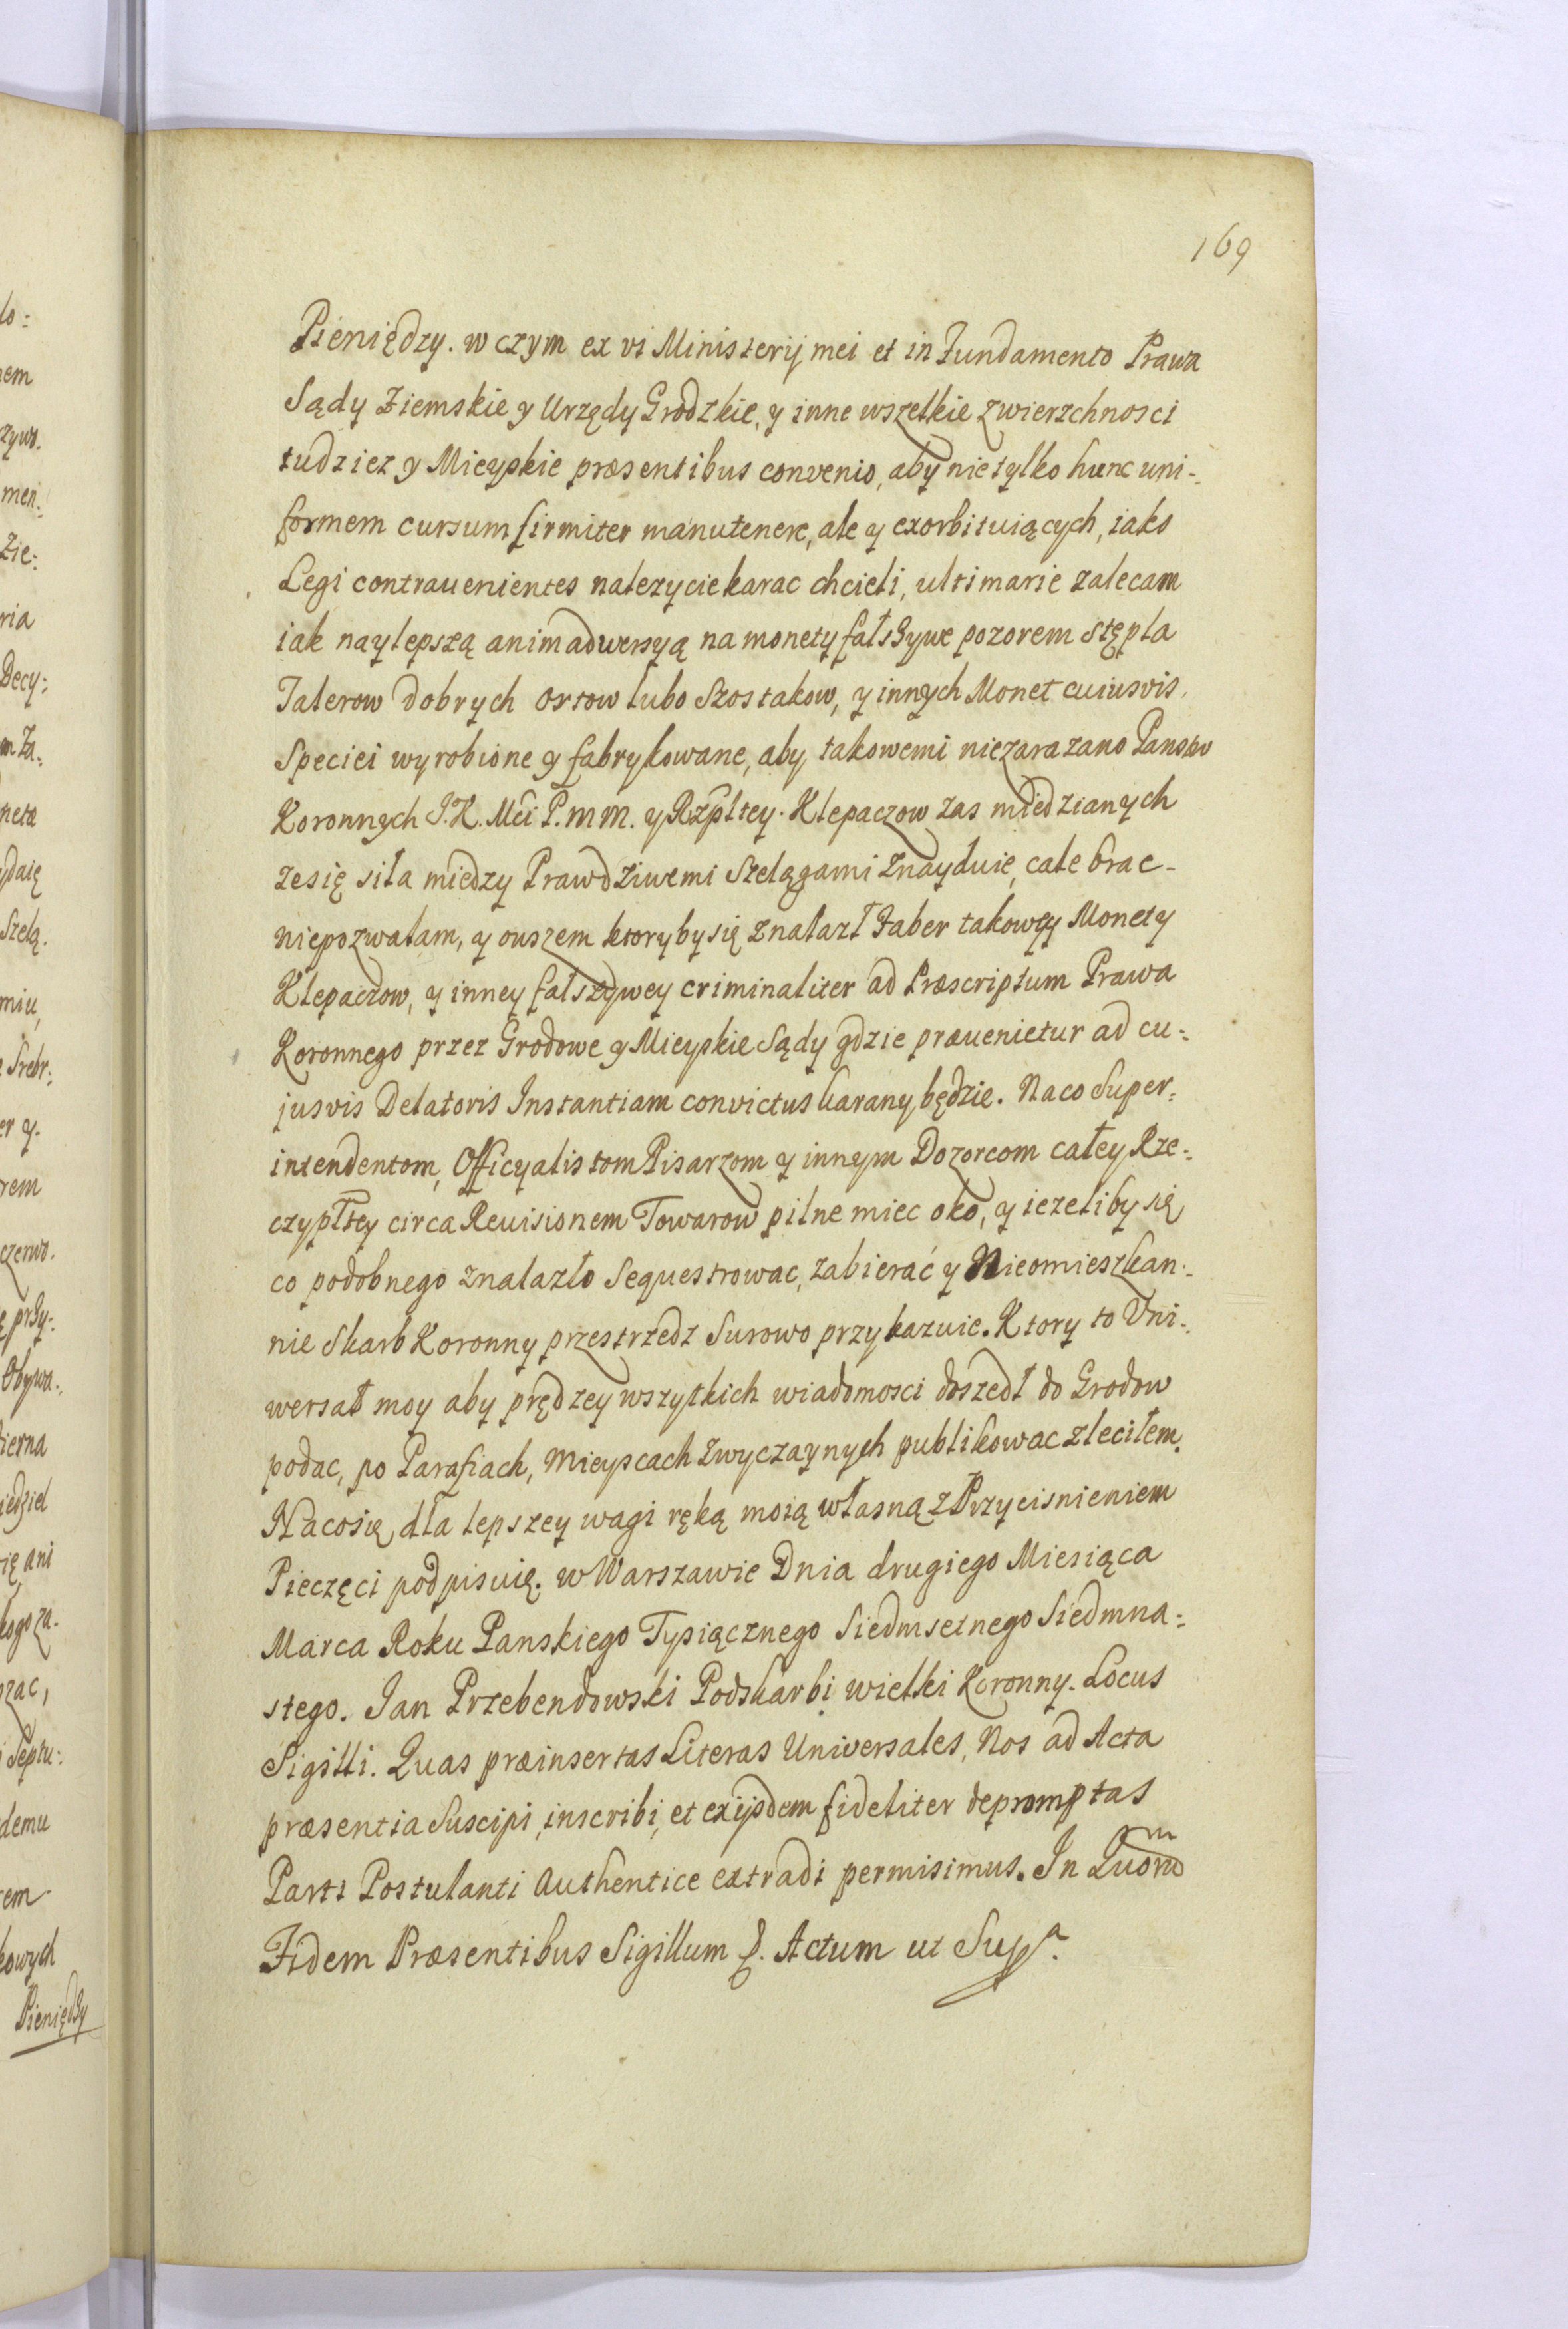 169
Pieniędzy. w czym ex vi Ministerij mei et in Fundamento Prawa
Sądy Ziemskie y Urzędy Grodzkie, y inne wszelkie zwierzchnosci
tudziez y Mieyskie præsentibus convenio, aby nie tylko hunc uni=
formem cursum firmiter manutenere, ale y exorbituiących, iako
Legi contravenientes nalezycie karac chcieli, ultimarie zalecam
iak naylepszą animadwersyą na monety fałszywe pozorem stępla
Talerow dobrych Ortow lubo Szostakow, y innych Monet cuiusvis
Speciei wyrobione y fabrykowane, aby takowemi niezarazano Panstw
Koronnych J.K.Mci P.m m. y Rzpltey. Klepaczow zas miedzianych
ze się siła miedzy Prawdziwemi Szelągami znayduie, cale brac
niepozwalam, y owszem ktoryby się znalazł Faber takowey Monety
Klepaczow, y inney fałszywey criminaliter ad Præscriptum Prawa
Koronnego przez Grodowe y Mieyskie Sądy gdzie prævenietur ad cu=
jusvis Delatoris Instantiam convictus karany będzie. Naco Super=
intendentom, Officyalistom Pisarzom y innym Dozorcom całey Rze=
czypltey circa Revisionem Towarow pilne miec oko, y iezeliby się
co podobnego znalazło Sequestrowac, zabierać y Nieomieszkan=
nie Skarb Koronny przestrzedz Surowo przykazuie. Ktory to Uni=
wersał moy aby prędzey wszytkich wiadomosci doszedł do Grodow
podac, po Parafiach, Mieyscach zwyczaynych publikowac zleciłem.
Nacosię dla lepszey wagi ręką moią własną z Przycisnieniem
Pieczęci podpisuię. w Warszawie Dnia drugiego Miesiąca
Marca Roku Panskiego Tysiącznego Siedmsetnego Siedmna=
stego. Jan Przebendowski Podskarbi wielki Koronny. Locus
Sigilli. Quas præinsertas Literas Universales, Nos ad Acta
præsentia Suscipi, inscribi, et exijsdem fideliter depromptas
Parti Postulanti Authentice extradi permisimus. In Quorm
Fidem Præsentibus Sigillum &. Actum ut Supa.
Pieniędzy